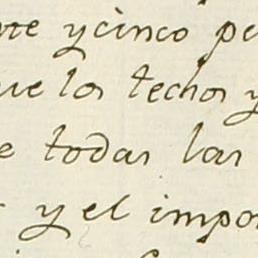 nte ycinco pe
ue los techos y
e todas las
y el impor